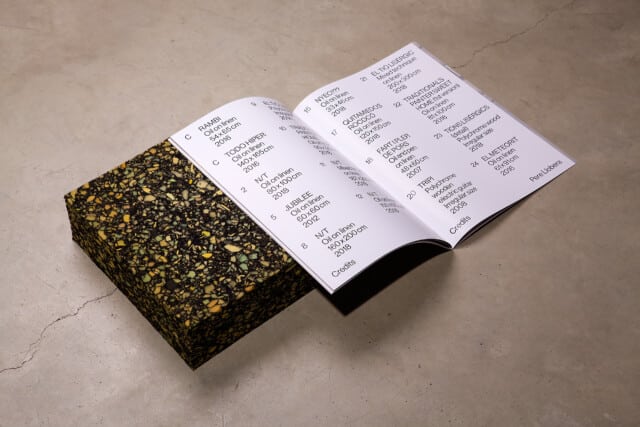 C RAMBI
Oil on linen
54 x 65 cm
2018
C TODO HIPER
Oil on linen
140 x 165 cm
2016
2 N/T
Oil on linen
80 x 100 cm
2018
5 JUBILEE
Oil on linen
60 x 60 cm
2012
8 N/T
Oil on linen
160 x 200 cm
2018
Credits
9
10
12 N/T
15 NYEC!!??
Oil on linen
33 x 46 cm
2018
17 QUITAMIEDOS
ROCOCÓ
Oil on linen
120 x 150 cm
2018
18 FART I PLER
DE PORS
Oil on linen
48 x 65 cm
2007
20 TRIPI
Polychrome
wooden
electroguitar
Irregular size
2008
Credits
21 EL TIO LISERGIC
Mixed technique
on linen
200 x 300 cm
2018
22 TRADITIONALS
PAINTER SWEET
HOME (1st version)
Oil on linen
85 x 100 cm
2016
23 TIONS LISERGICS
(detall)
Polychrome wood
Irregular size
2018
24 EL METEORIT
Oil on linen
61 x 81 cm
2015
Pere Llobera